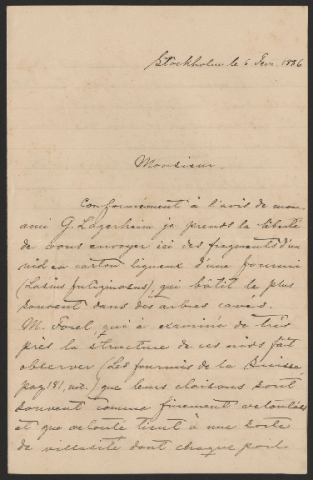 Stockholm le 6 Fevr. 1886
Monsieur
Conformément à l'avis de mon
ami G. Lagerheim je prends la liberté
de vous envoyer ici des fragments d'un
nid en carton ligneux d'une fourmi
(Lasius fuliginosus), qui bâtit le plus
souvent dans des arbres caves.
M. Forel, qui a examiné de très
près la structure de ces nids, fait
observer (Les fourmis de la Suisse,
pag 181, ) que leurs cloisons sont
souvent comme finement veloutées
et que velouté tient à une sorte
de villosité dont chaque poil